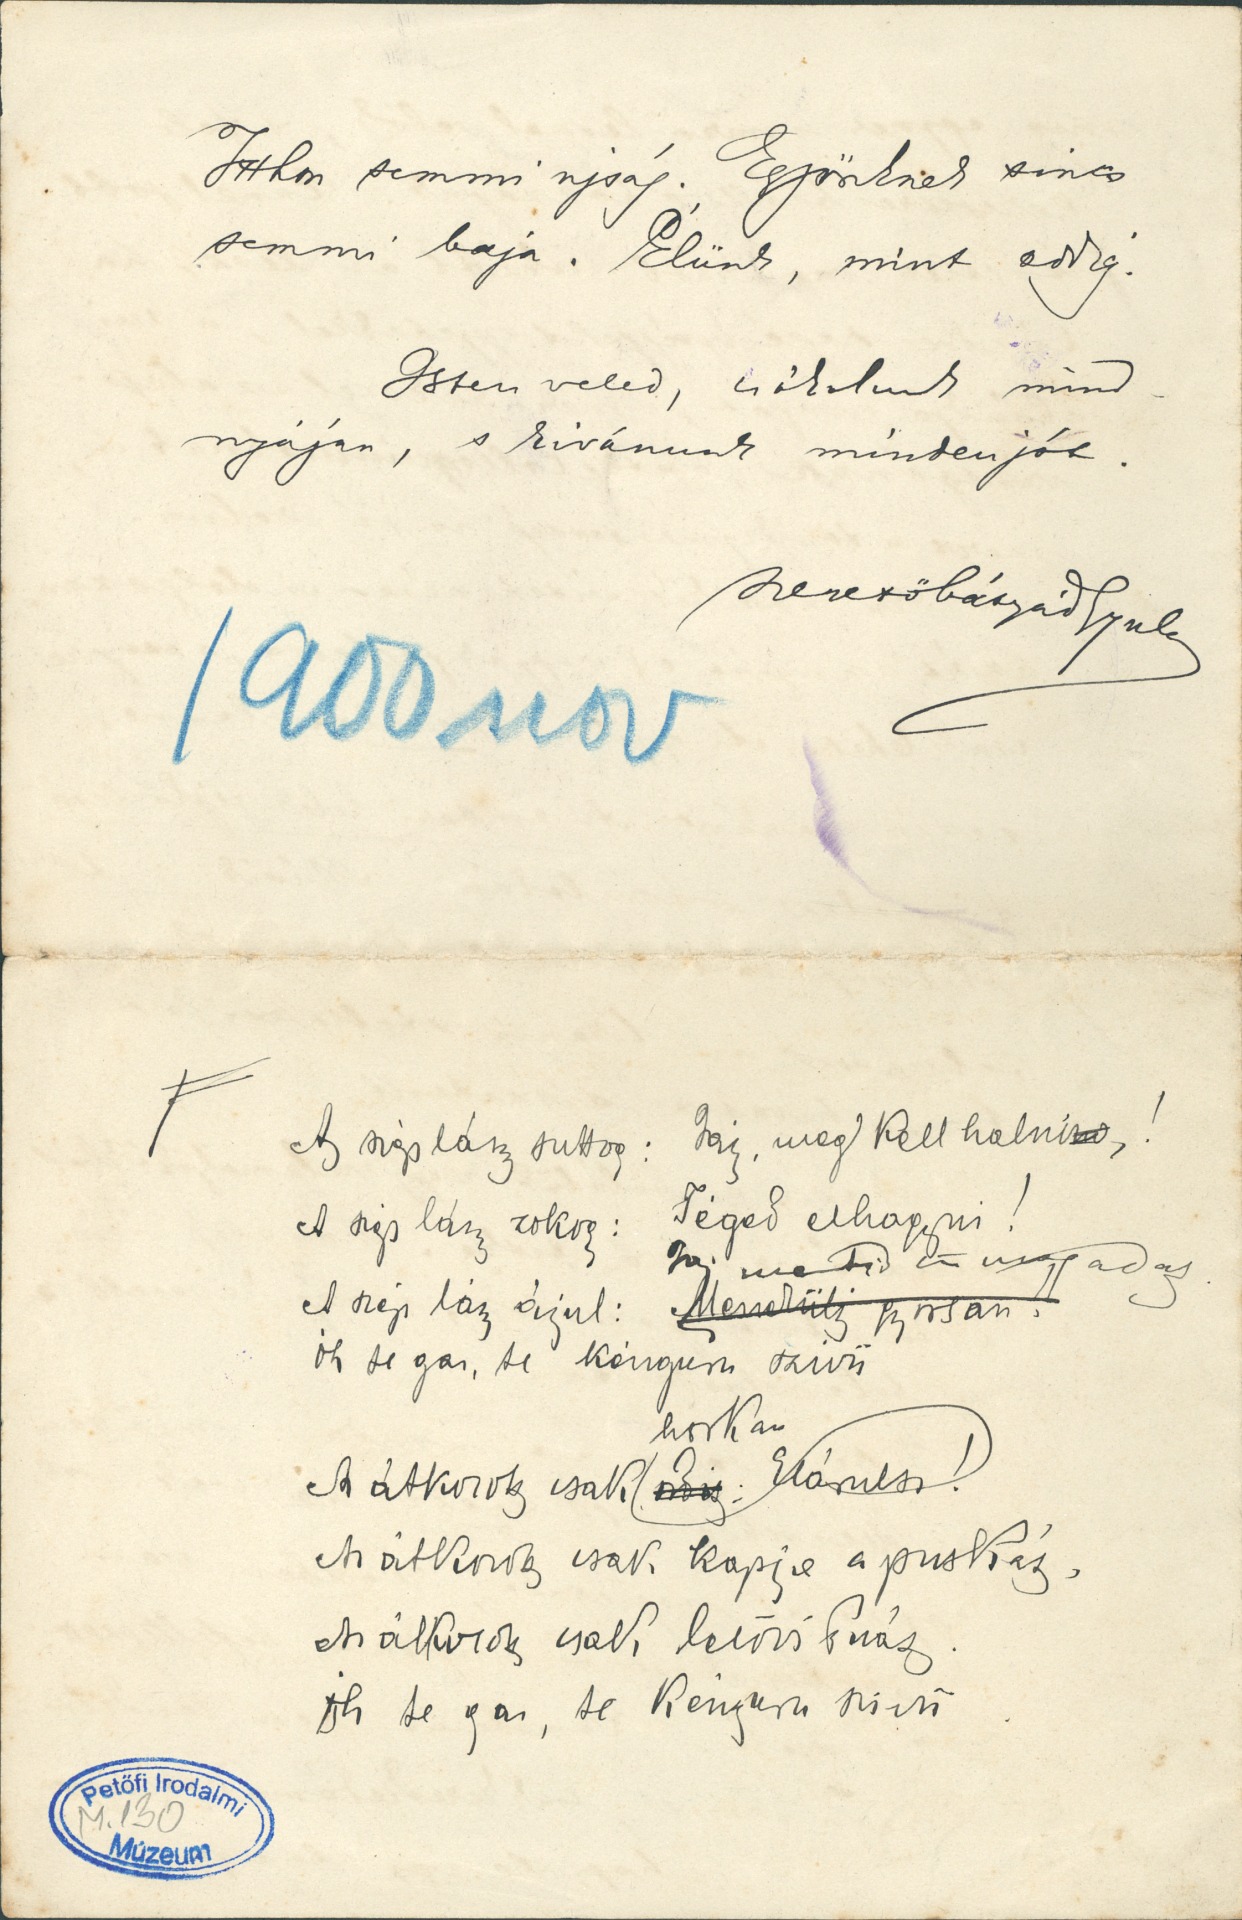 Itthon semmi ujság. Egyőnknek sincs
semmi baja. Élünk, mint eddig.
Isten veled, csókolunk mind
nyájan, s kivánunk minden jót.
szerető bátyád Gyula
1900 nov
A szép lász suttog: Jaj, meg kell halni!
A szép lász zokog: Téged elhagyni!
Jaj
A szép lász ájul: gyorsan!
Óh te gaz, te kénguru szivü
horkan
Az átkozott csak Elárulsz!
Az átkozott csak kapja a puskát,
Az átkozott csak
Óh te gaz, te kénguru szivü
Petőfi Irodalmi
M.130
Múzeum